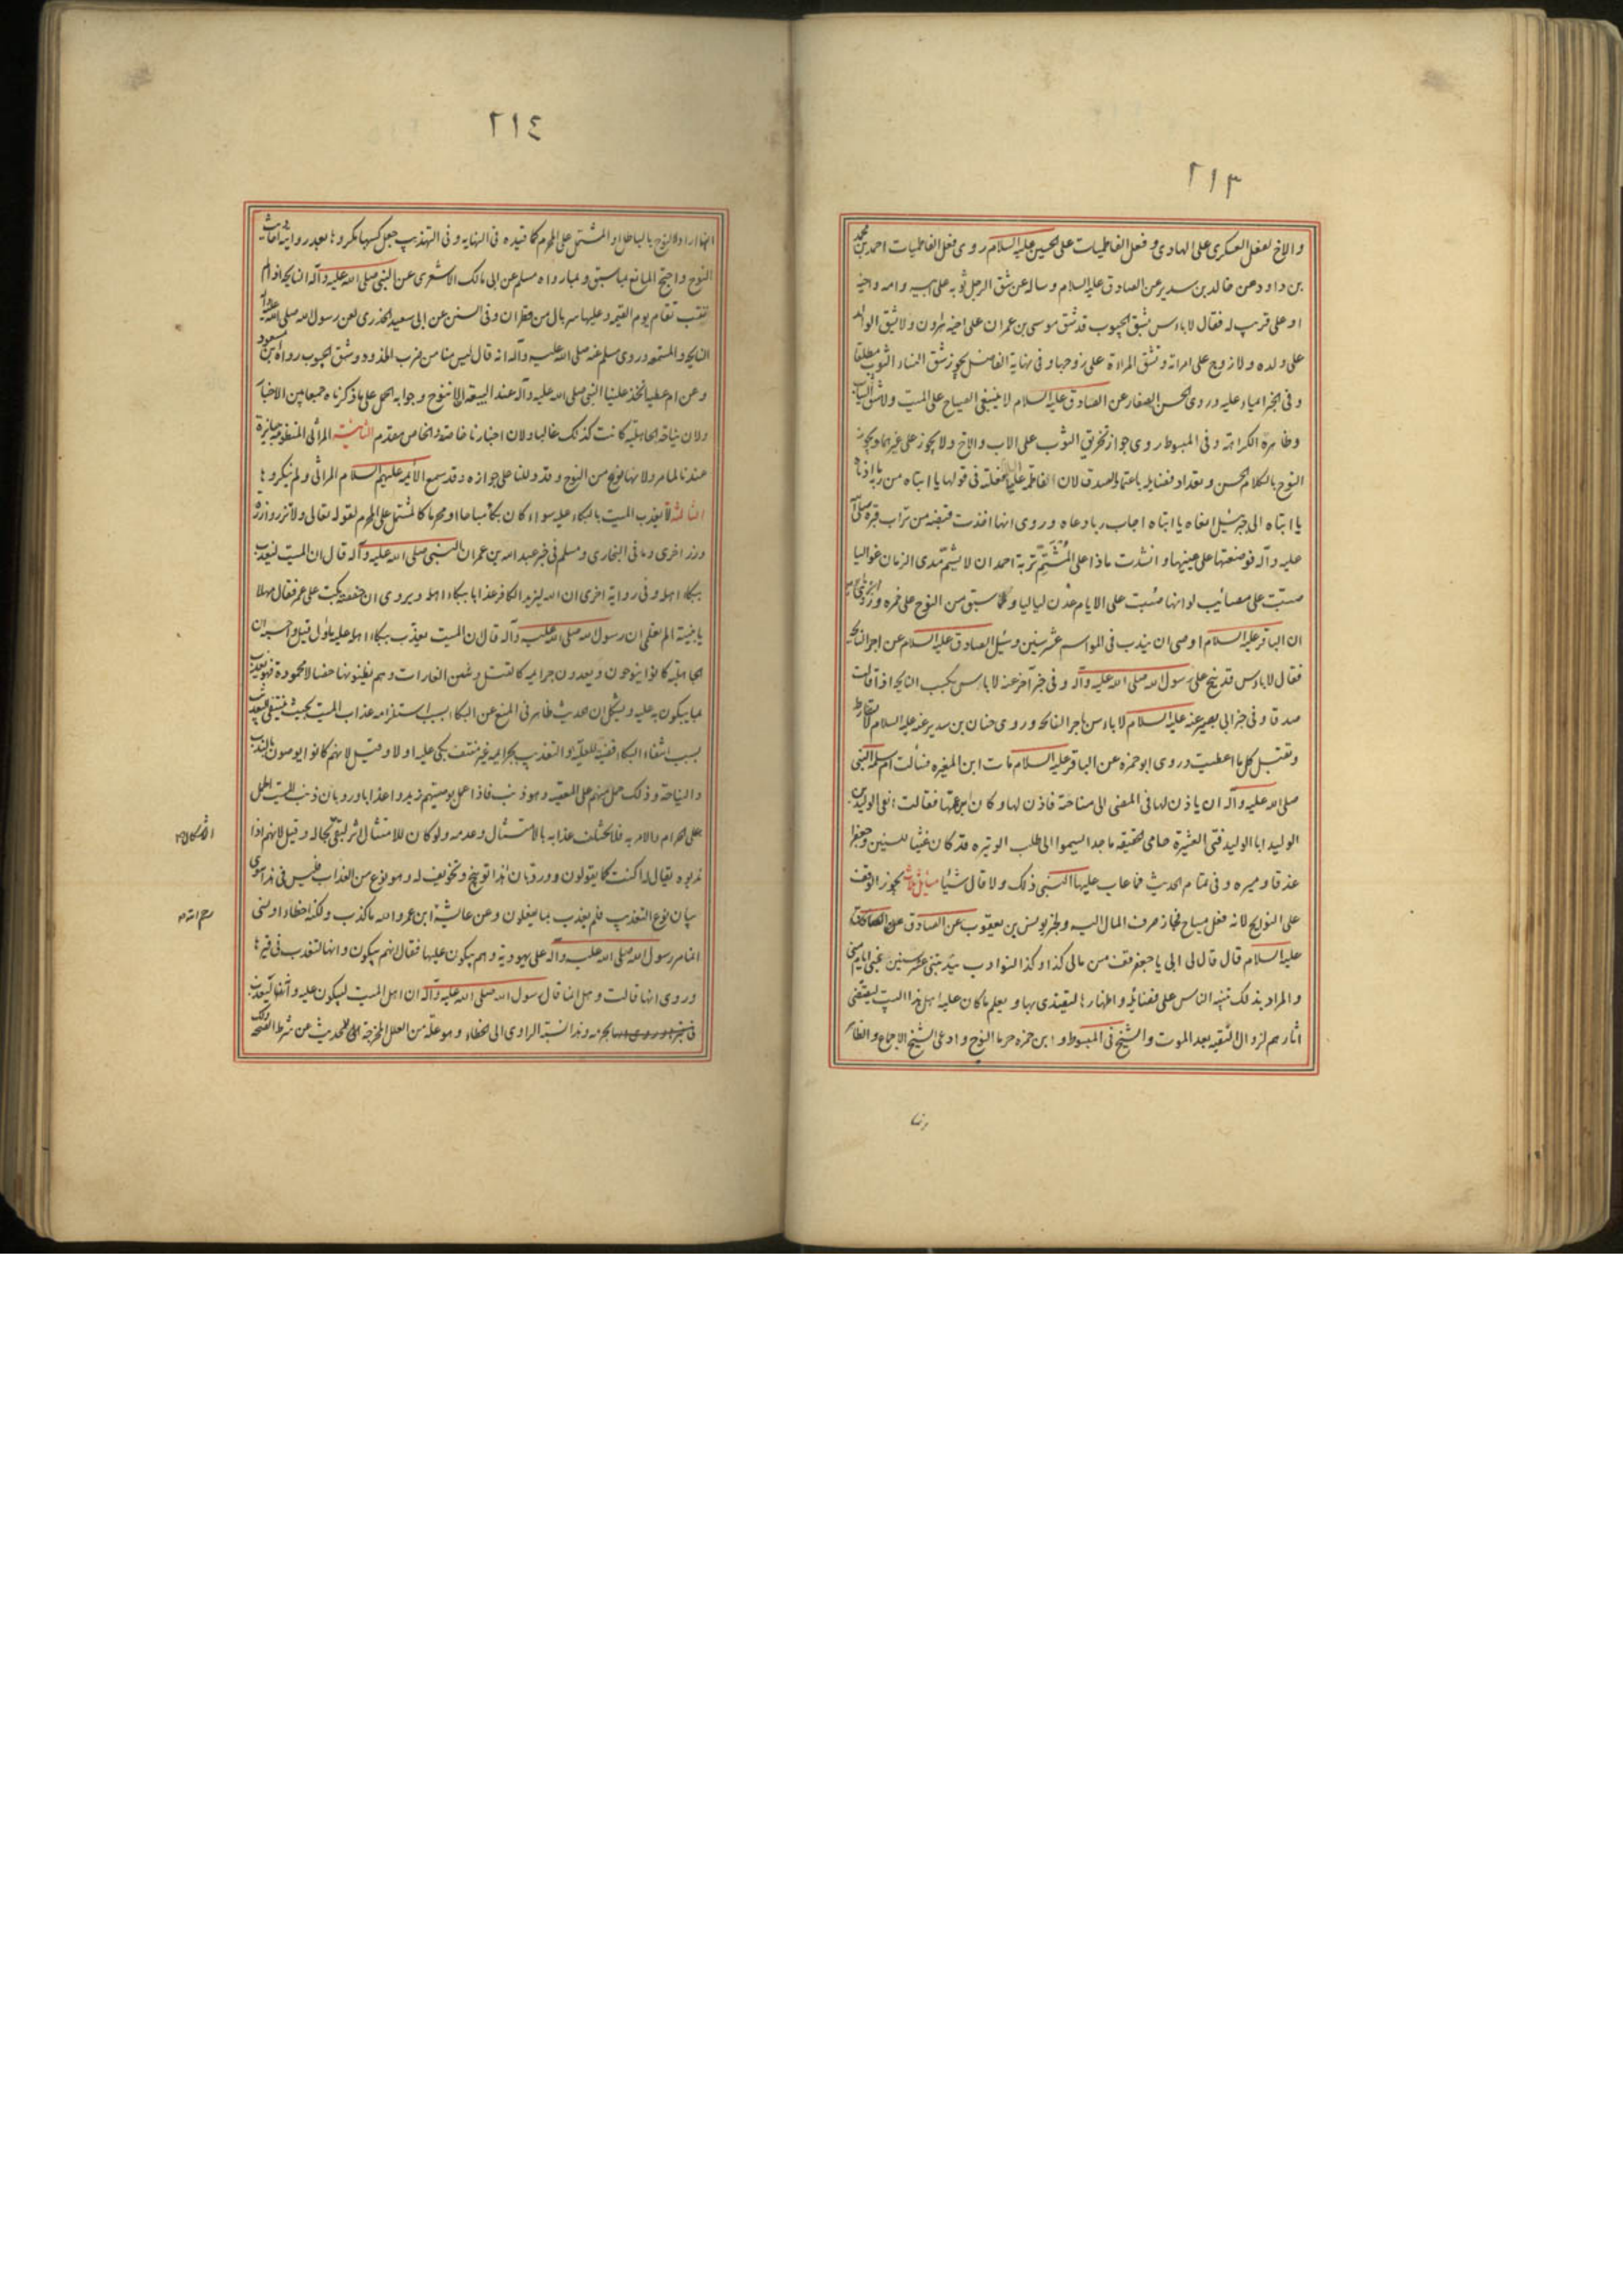 ٢١٣
والاخ لفعل العسكري على الهادي و فعل الفاطميات على الحسين عليه السلام روى فعل الفاطميات احمد بن محمد
بن داود عن خالد بن سدير عن الصادق عليه السلام وساله عن شق الرجل ثوبه على ابيه وامه واخيه
او على قريب له فقال لا باس بشق الجيوب قد شق موسى بن عمران على اخيه هارون ولا يشق الوالد
على ولده ولا زوج على امراته وتشق المراءة على زوجها وفي نهاية الفاضل يجوز شق النساء الثوب مطلقا
وفي الخبر ايماء عليه وروى الحسن الصفار عن الصادق عليه السلام لا ينبغي الصياح على الميت ولا شق الثياب
وظاهره الكراهة وفي المبسوط روى جواز تخريق الثوب على الاب والاخ ولا يجوز على غيرهما ويجوز
النوح بالكلام الحسن وتعداد فضايله باعتماد الصدق لان فاطمة عليها السلام فعلته في قولها يا ابتاه من ربه ما ادناه
يا ابتاه الى جبرئيل انعاه يا ابتاه اجاب ربا دعاه وروى انها اخذت قبضة من تراب قبره صلى الله
عليه وآله فوضعتها على عينيها وانشدت ماذا على المشتم تربة احمد ان لا يشم مدى الزمان غواليا
صبت على مصائب لو انها صبت على الايام عدن لياليا ولما سبق من النوح على حمزه وروى
ان الباقر عليه السلام اوصى ان يندب في المواسم عشر سنين وسئل الصادق عليه السلام عن اجر النايحه
فقال لا باس قد نيح على رسول الله صلى الله عليه وآله وفي خبر آخر عنه لا باس بكسب النايحه اذا قالت
صدقا وفي خبر ابي بصير عنه عليه السلام لا باس باجر النائحه وروى حنان بن سدير عنه عليه السلام لا تشارط
وتقبل كل ما اعطيت وروى ابو حمزه عن الباقر عليه السلام مات ابن المغيره فسألت ام سلمه النبي
صلى الله عليه وآله ان ياذن لها في المضى الى مناحة فاذن لها وكان ابن عمها فقالت انعى الوليد بن
الوليد ابا الوليد فتى العشيرة حامى الحقيقه ماجدا يسموا الى طلب الوتيره قد كان غيثا للسنين وجعفرا
غدقا وميره وفي تمام الحديث فما عاب عليها النبي ذلك ولا قال شيئا مسايل ثلاث يجوز الوقف
على النوايح لانه فعل مباح فجاز صرف المال اليه ولخبر يونس بن يعقوب عن الصادق
عليه السلام قال قال لى ابي يا جعفر قف من مالي كذا وكذا لنوادب يندبنني عشر سنين بمنى ايام منى
والمراد بذلك تنبيه الناس على فضائله واظهارها ليقتدى بها ويعلم ما كان عليه اهل هذا البيت ليقتفى
آثارهم لزوال التقيه بعد الموت والشيخ في المبسوط وابن حمزه حرما النوح وادعى الشيخ الاجماع والظاهر
٢١٤
انهما ارادا النوح بالباطل او المشتمل على المحرم كما قيده في النهايه وفي التهذيب جعل كسبها مكروها بعد روايته احاديث
النوح واحتج المانع بما سبق وبما رواه مسلم عن ابي مالك الاشعرى عن النبي صلى الله عليه وآله النايحه اذا لم
تتب تقام يوم القيمه وعليها سربال من قطران وفي السنن عن ابي سعيد الخدرى لعن رسول الله صلى الله عليه وآله
النايحه والمستمعه وروى مسلم عنه صلى الله عليه وآله انه قال ليس منا من ضرب الخدود وشق الجيوب رواه ابن مسعود
وعن ام عطيه اخذ علينا النبي صلى الله عليه وآله عند البيعة ان لا ننوح وجوابه الحمل على ما ذكرناه جمعا بين الاخبار
ولان نياحة الجاهلية كانت كذلك غالبا ولان اخبارنا خاصة والخاص مقدم الثانية المراثى المنظومة جايزة
عندنا لما مر ولانها نوع من النوح وقد دللنا على جوازه وقد سمع الأئمة عليهم السلام المراثى ولم ينكروها
الثالثة لا يعذب الميت بالبكاء عليه سواء كان بكاء مباحا او محرما كالمشتمل على المحرم لقوله تعالى ولا تزر وازرة
وزر اخرى وما في البخارى ومسلم في خبر عبد الله بن عمر ان النبي صلى الله عليه وآله قال ان الميت ليعذب
ببكاء اهله وفي رواية اخرى ان الله ليزيد الكافر عذابا ببكاء اهله ويروى ان حفصه بكت على عمر فقال مهلا
يا بنية الم تعلمى ان رسول الله صلى الله عليه وآله قال ان الميت يعذب ببكاء اهله عليه ماول قيل واحسنه ان
الجاهلية كانوا ينوحون ويعدون جرايمه كالقتل وشن الغارات وهم يظنونها خصالا محمودة فهو يعذب
بما يبكون به عليه ويشكل ان الحديث ظاهر في المنع عن البكاء بسبب استلزامه عذاب الميت بحيث ينتفى التعذيب
بسبب انتفاء البكاء قضية للعلية والتعذيب بجرايمه غير منتف بكى عليه او لا وقيل لانهم كانوا يوصون بالندب
والنياحة وذلك حمل منهم على المعصيه وهو ذنب فاذا عمل بوصيتهم زيدوا عذابا ورد بان ذنب الميت الحمل
على الحرام والامر به فلا يختلف عذابه بالامتثال وعدمه ولو كان للامتثال اثر لبقى الاشكال بحاله وقيل لانهم اذا
ندبوه يقال له اكنت كما يقولون ورد بان هذا توبيخ وتخويف له وهو نوع من العذاب فليس في هذا سوى
بيان نوع التعذيب فلم يعذب بما يفعلون وعن عايشة رحم الله ابن عمر والله ما كذب ولكنه اخطاء او نسى
انما مر رسول الله صلى الله عليه وآله على يهودية وهم يبكون عليها فقال انهم يبكون وانها لتعذب في قبرها
وروى انها قالت وهل انما قال رسول الله صلى الله عليه وآله ان اهل الميت ليبكون عليه وانه ليعذب
بجرمه وهذا نسبة الراوى الى الخطاء وهو علة من العلل المخرجة للحديث عن شرط الصحه